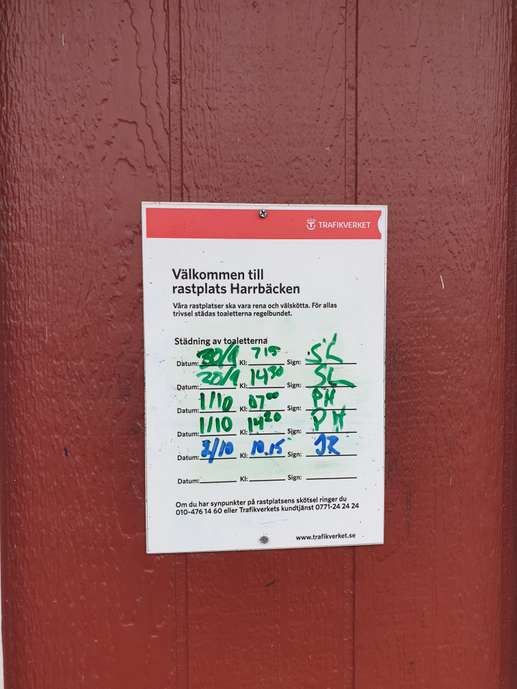 TRAFIKVERKET
Välkommen till
rastplats Harrbäcken
Våra rastplatser ska vara rena och välskötta. För allas
trivsel städas toaletterna regelbundet.
Städning av toaletterna
Datum: 30/9 Kl: 715 Sign: SL
Datum: 30/9 Kl: 1430 Sign: SL
Datum: 1/10 Kl: 0700 Sign: PH
Datum: 1/10 Kl: 1420 Sign: PH
Datum: 2/10 Kl: 10.15 Sign: JR
Datum: Kl: Sign:
Om du har synpunkter på rastplatsens skötsel ringer du
010-476 14 60 eller Trafikverkets kundtjänst 0771-24 24 24
www.trafikverket.se